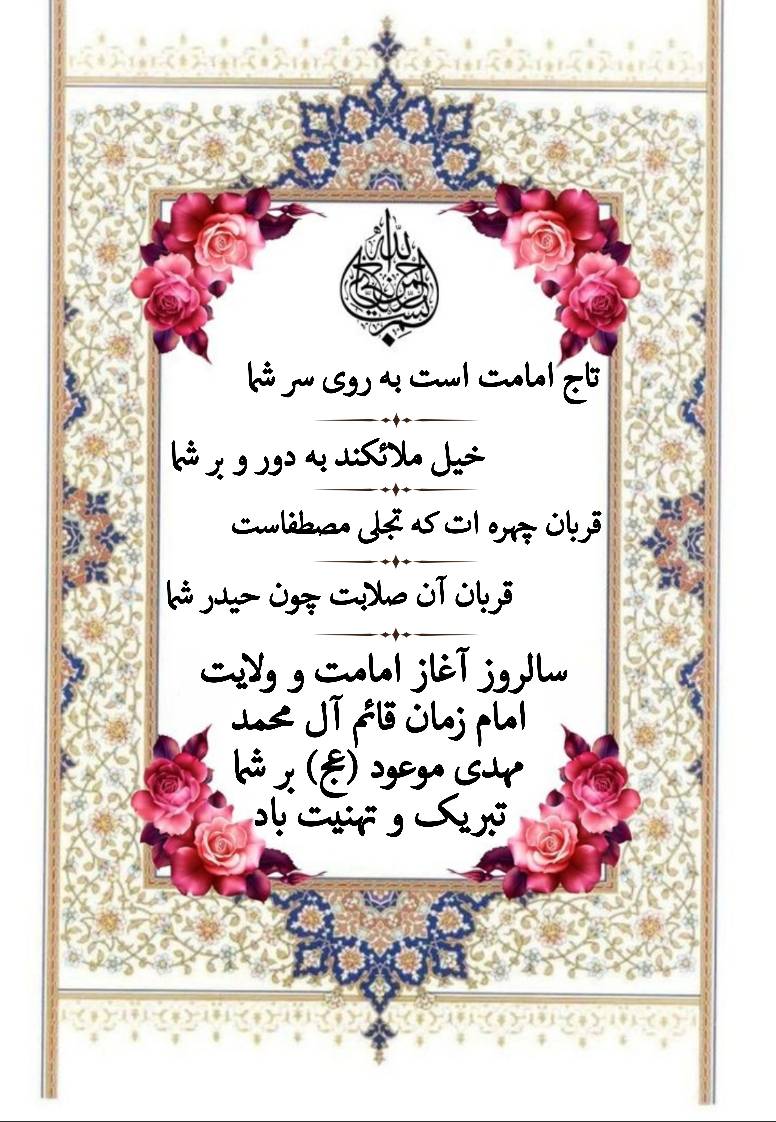 بسم الله الرحمن الرحیم
تاج امامت است به روی سر شما
خیل ملائکند به دور و بر شما
قربان چهره ات که تجلی مصطفاست
قربان آن صلابت چون حیدر شما
سالروز آغاز امامت و ولایت
امام زمان قائم آل محمد
مهدی موعود (عج) بر شما
تبریک و تهنیت باد